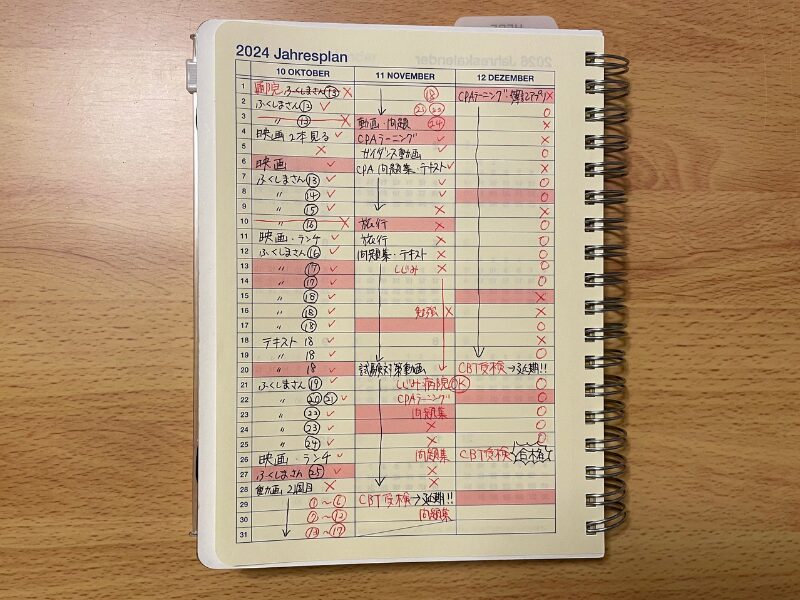 2024 Jahresplan
10 OKTOBER 11 NOVEMBER 12 DEZEMBER
1 病院 ふくしまさん⑬ × ⑱ CPAラーニング ×
2 ふくしまさん⑫ ✓ ㉒ ㉓ ○
3 〃 ⑬ × 動画・問題 ㉔ ×
4 映画2本見る ✓ CPAラーニング ✓ ×
5 × ガイダンス動画 ✓ ×
6 映画 ✓ CPA 問題集・テキスト ✓ ×
7 ふくしまさん⑬ ✓ ✓ ○
8 〃 ⑭ ✓ ✓ ○
9 〃 ⑮ ✓ × ×
10 〃 ⑯ × 旅行 × ×
11 映画・ランチ ✓ 旅行 × ○
12 ふくしまさん⑯ ✓ 問題集・テキスト × ○
13 〃 ⑰ ✓ しじみ ○
14 〃 ⑰ ✓ ○
15 〃 ⑱ ✓ ×
16 〃 ⑱ ✓ 勉強 × ×
17 〃 ⑱ ✓ ○
18 テキスト 18 ✓ ×
19 〃 18 ✓ ○
20 〃 18 ✓ 試験対策動画 CBT受検→延期!!
21 ふくしまさん⑲ ✓ しじみ病院OK ○
22 〃 ⑳ ㉑ ✓ CPAラーニング ○
23 〃 ㉒ ✓ 問題集 ○
24 〃 ㉓ ✓ × ○
25 〃 ㉔ ✓ × ○
26 映画・ランチ ✓ 問題集 CBT受検 合格
27 ふくしまさん㉕ ✓ ×
28 動画2回目 × ×
29 ①〜⑥ CBT受検→延期!!
30 ⑦〜⑫ 問題集
31 ⑬〜⑰